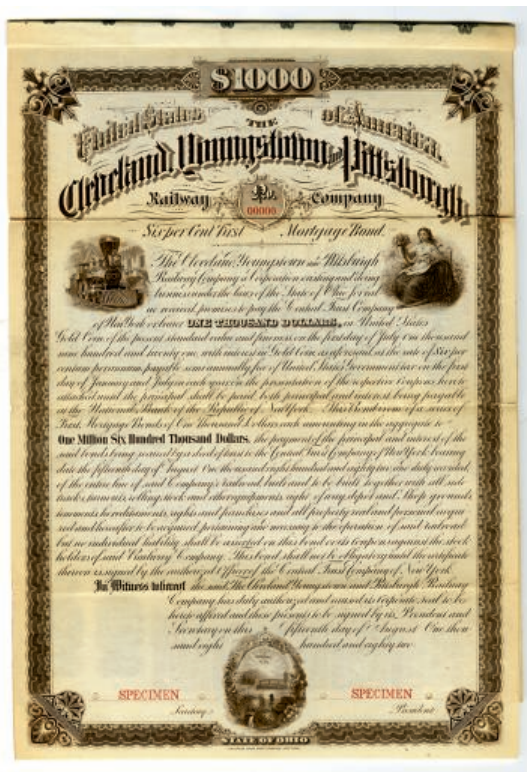 $1000
United States of America.
THE
Cleveland, Youngstown and Pittsburgh
Railway No. Company
00000
Six per Cent First Mortgage Bond.
The Cleveland, Youngstown and Pittsburgh
Railway Company a Corporation existing and doing
business under the laws of the State of Ohio for val
ue received, promises to pay the Central Trust Company
of New York or bearer ONE THOUSAND DOLLARS, in United States
Gold Coin of the present standard value and fineness on the first day of July One thousand
nine hundred and twenty one, with interest in Gold Coin as aforesaid, at the rate of Six per
centum per annum, payable semi annually free of United States Government tax on the first
day of January and July in each year on the presentation of the respective Coupons hereto
attached until the principal shall be paid, both principal and interest being payable
at the National Bank of the Republic of New York. This Bond is one of a series of
First Mortgage Bonds of One Thousand Dollars each amounting in the aggregate to
One Million Six Hundred Thousand Dollars, the payment of the principal and interest of the
said bonds being secured by a deed of trust to the Central Trust Company of New York bearing
date the fifteenth day of August One thousand eight hundred and eighty two duly recorded,
of the entire line of said Company's railroad built and to be built together with all
tracks, rolling stock and other equipments, rights of way, depot and Shop grounds
tenements, hereditaments, rights and franchises and all property real and personal
and hereafter to be acquired pertaining or necessary to the operation of said railroad
but no individual liability shall be asserted on this bond or its coupons against the stock
holders of said Railway Company. This bond shall not be obligatory until the certificate
thereon is signed by the authorized Officer of the Central Trust Company of New York
In Witness whereof the said The Cleveland Youngstown and Pittsburgh Railway
Company has duly authorized and caused its Corporate seal to be
hereto affixed and these presents to be signed by its President and
Secretary on this fifteenth day of August One thou
sand eight hundred and eighty two
SPECIMEN SPECIMEN
Secretary. President.
STATE OF OHIO